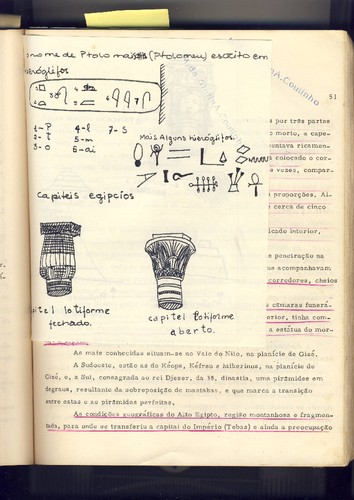 nome de Ptolo (Ptolomeu) escrito em
hieróglifos
1-P 4-l 7-S
2-t 5-m
3-o 6-ai
Mais Alguns hieróglifos.
Capiteis egipcios
capitel lotiforme
fechado.
capitel lotiforme
aberto.
A. Coutinho
51
por três partas
morto, a cape-
ntava ricamen-
colocado o cor-
vezes, compar-
proporções. Al-
cerca de cinco
icado interior.
penetração na
ue acompanhavam
corredores, cheios
s câmaras funerá-
erior, tinha com-
a estátua do mor-
As mais conhecidas situam-se no Vale do Nilo, na planície de Gizé.
A Sudoeste, estão as do Kéops, Kéfren e Mikerinos, na planície de
Gizé, e, a Sul, consagrada ao rei Djeser, da 3ª, dinastia, uma pirâmides em
degraus, resultante da sobreposição de mastabas, e que marca a transição
entre estas e as pirâmides perfeitas.
As condições geográficas do Alto Egipto, região montanhosa e fragmen-
tada, para onde se transferiu a capital do Império (Tebas) e ainda a preocupação